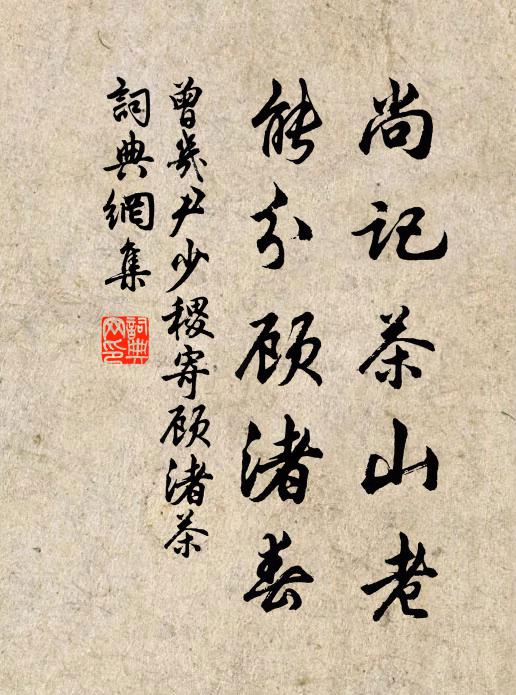 尚记茶山老
能分顾渚春
曾幾尹少稷寄顾渚茶
詞典網集
詞典網印